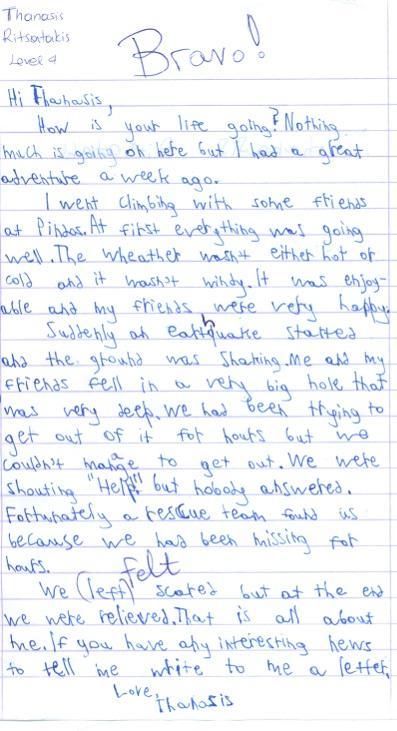 Thanasis
Ritsatakis
Level 4
Bravo!
Hi Thanasis,
How is your life going? Nothing
much is going on here but I had a great
adventure a week ago.
I went climbing with some friends
at Pindos. At first everything was going
well. The wheather wasn't either hot or
cold and it wasn't windy. It was enjoy-
able and my friends were very happy.
Suddenly an earthquake started
and the ground was shaking. Me and my
friends fell in a very big hole that
was very deep. We had been trying to
get out of it for hours but we
couldn't manage to get out. We were
shouting "Help!" but nobody answered.
Fortunately a rescue team found us
because we had been missing for
hours. felt
We (left) scared but at the end
we were relieved. That is all about
me. If you have any interesting news
to tell me write to me a letter.
Love,
Thanasis